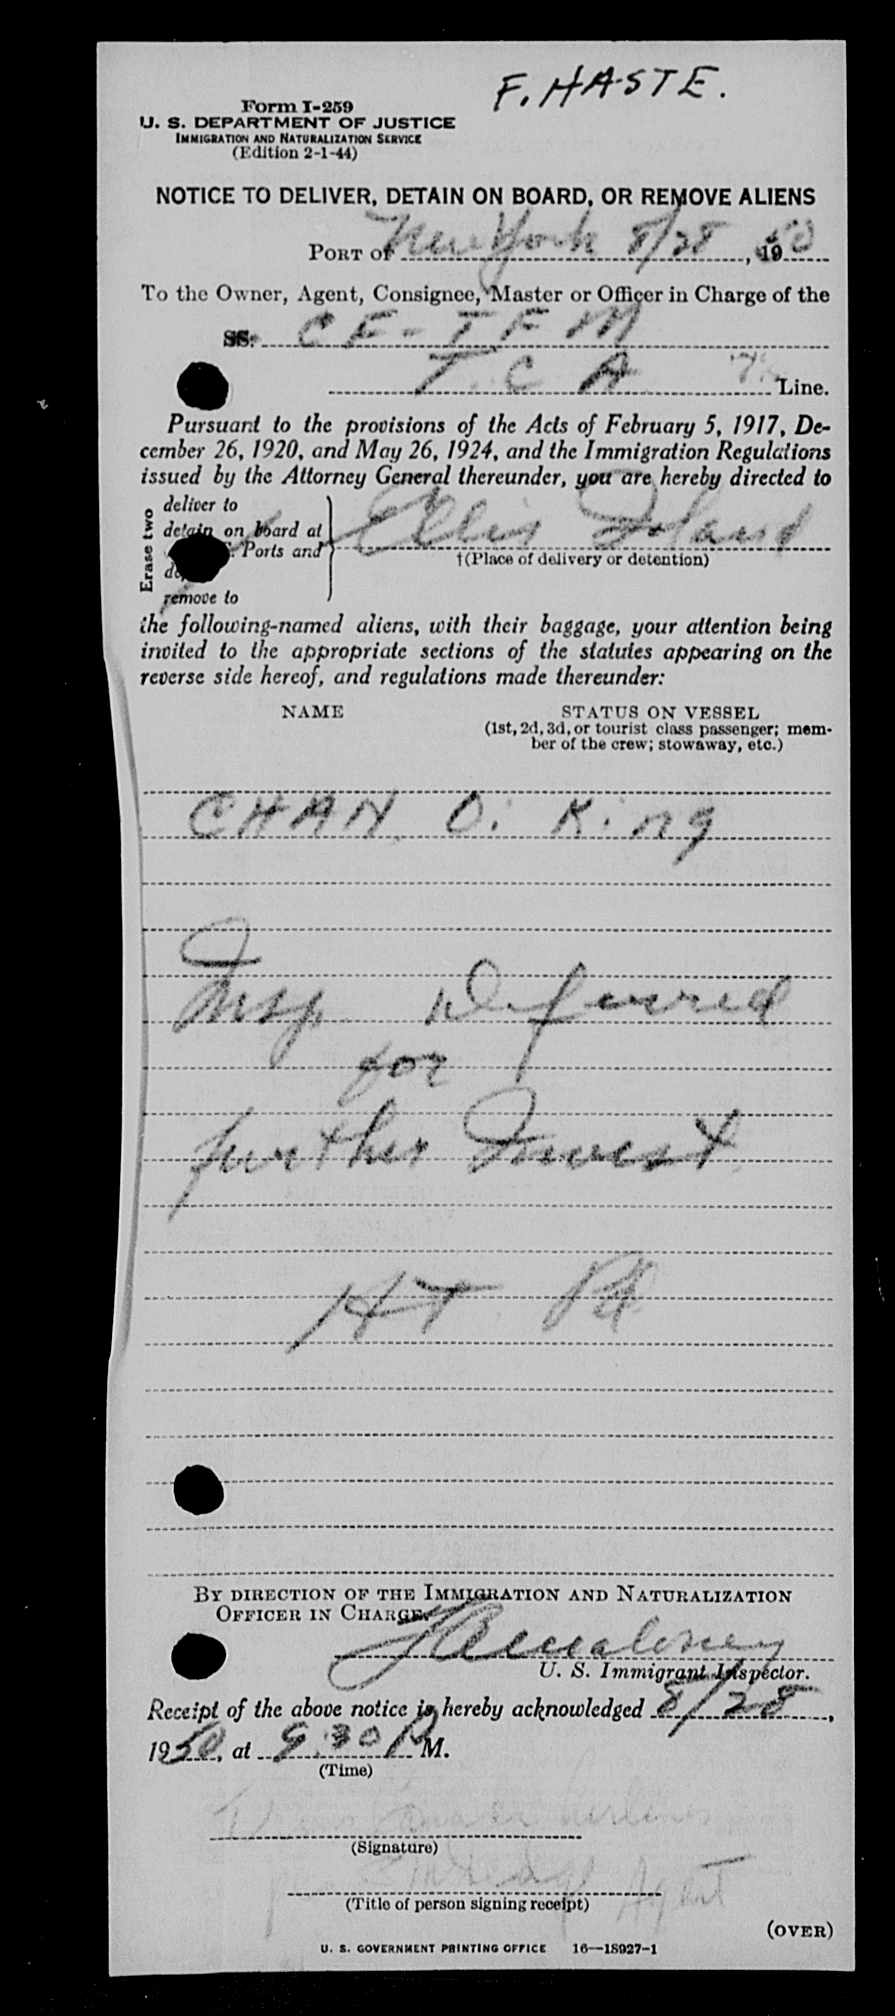 F. HASTE.
Form I-259
U. S. DEPARTMENT OF JUSTICE
IMMIGRATION AND NATURALIZATION SERVICE
(Edition 2-1-44)
NOTICE TO DELIVER, DETAIN ON BOARD, OR REMOVE ALIENS
PORT OF New York 8/28, 1950
To the Owner, Agent, Consignee, Master or Officer in Charge of the
SS. CF-TFM
T. C A Line.
Pursuant to the provisions of the Acts of February 5, 1917, De-
cember 26, 1920, and May 26, 1924, and the Immigration Regulations
issued by the Attorney General thereunder, you are hereby directed to
Erase two
deliver to
detain on board at
Ports and
remove to
Ellis Island
†(Place of delivery or detention)
the following-named aliens, with their baggage, your attention being
invited to the appropriate sections of the statutes appearing on the
reverse side hereof, and regulations made thereunder:
NAME STATUS ON VESSEL
(1st, 2d, 3d, or tourist class passenger; mem-
ber of the crew; stowaway, etc.)
CHAN, Oi King
Insp Deferred
for
further Invest
HT Pd
BY DIRECTION OF THE IMMIGRATION AND NATURALIZATION
OFFICER IN CHARGE.
U. S. Immigrant Inspector.
Receipt of the above notice is hereby acknowledged 8/28,
1950, at 9:30 P M.
(Time)
Trans Canada Airlines
(Signature)
Agent
(Title of person signing receipt)
(OVER)
U. S. GOVERNMENT PRINTING OFFICE 16—18927-1